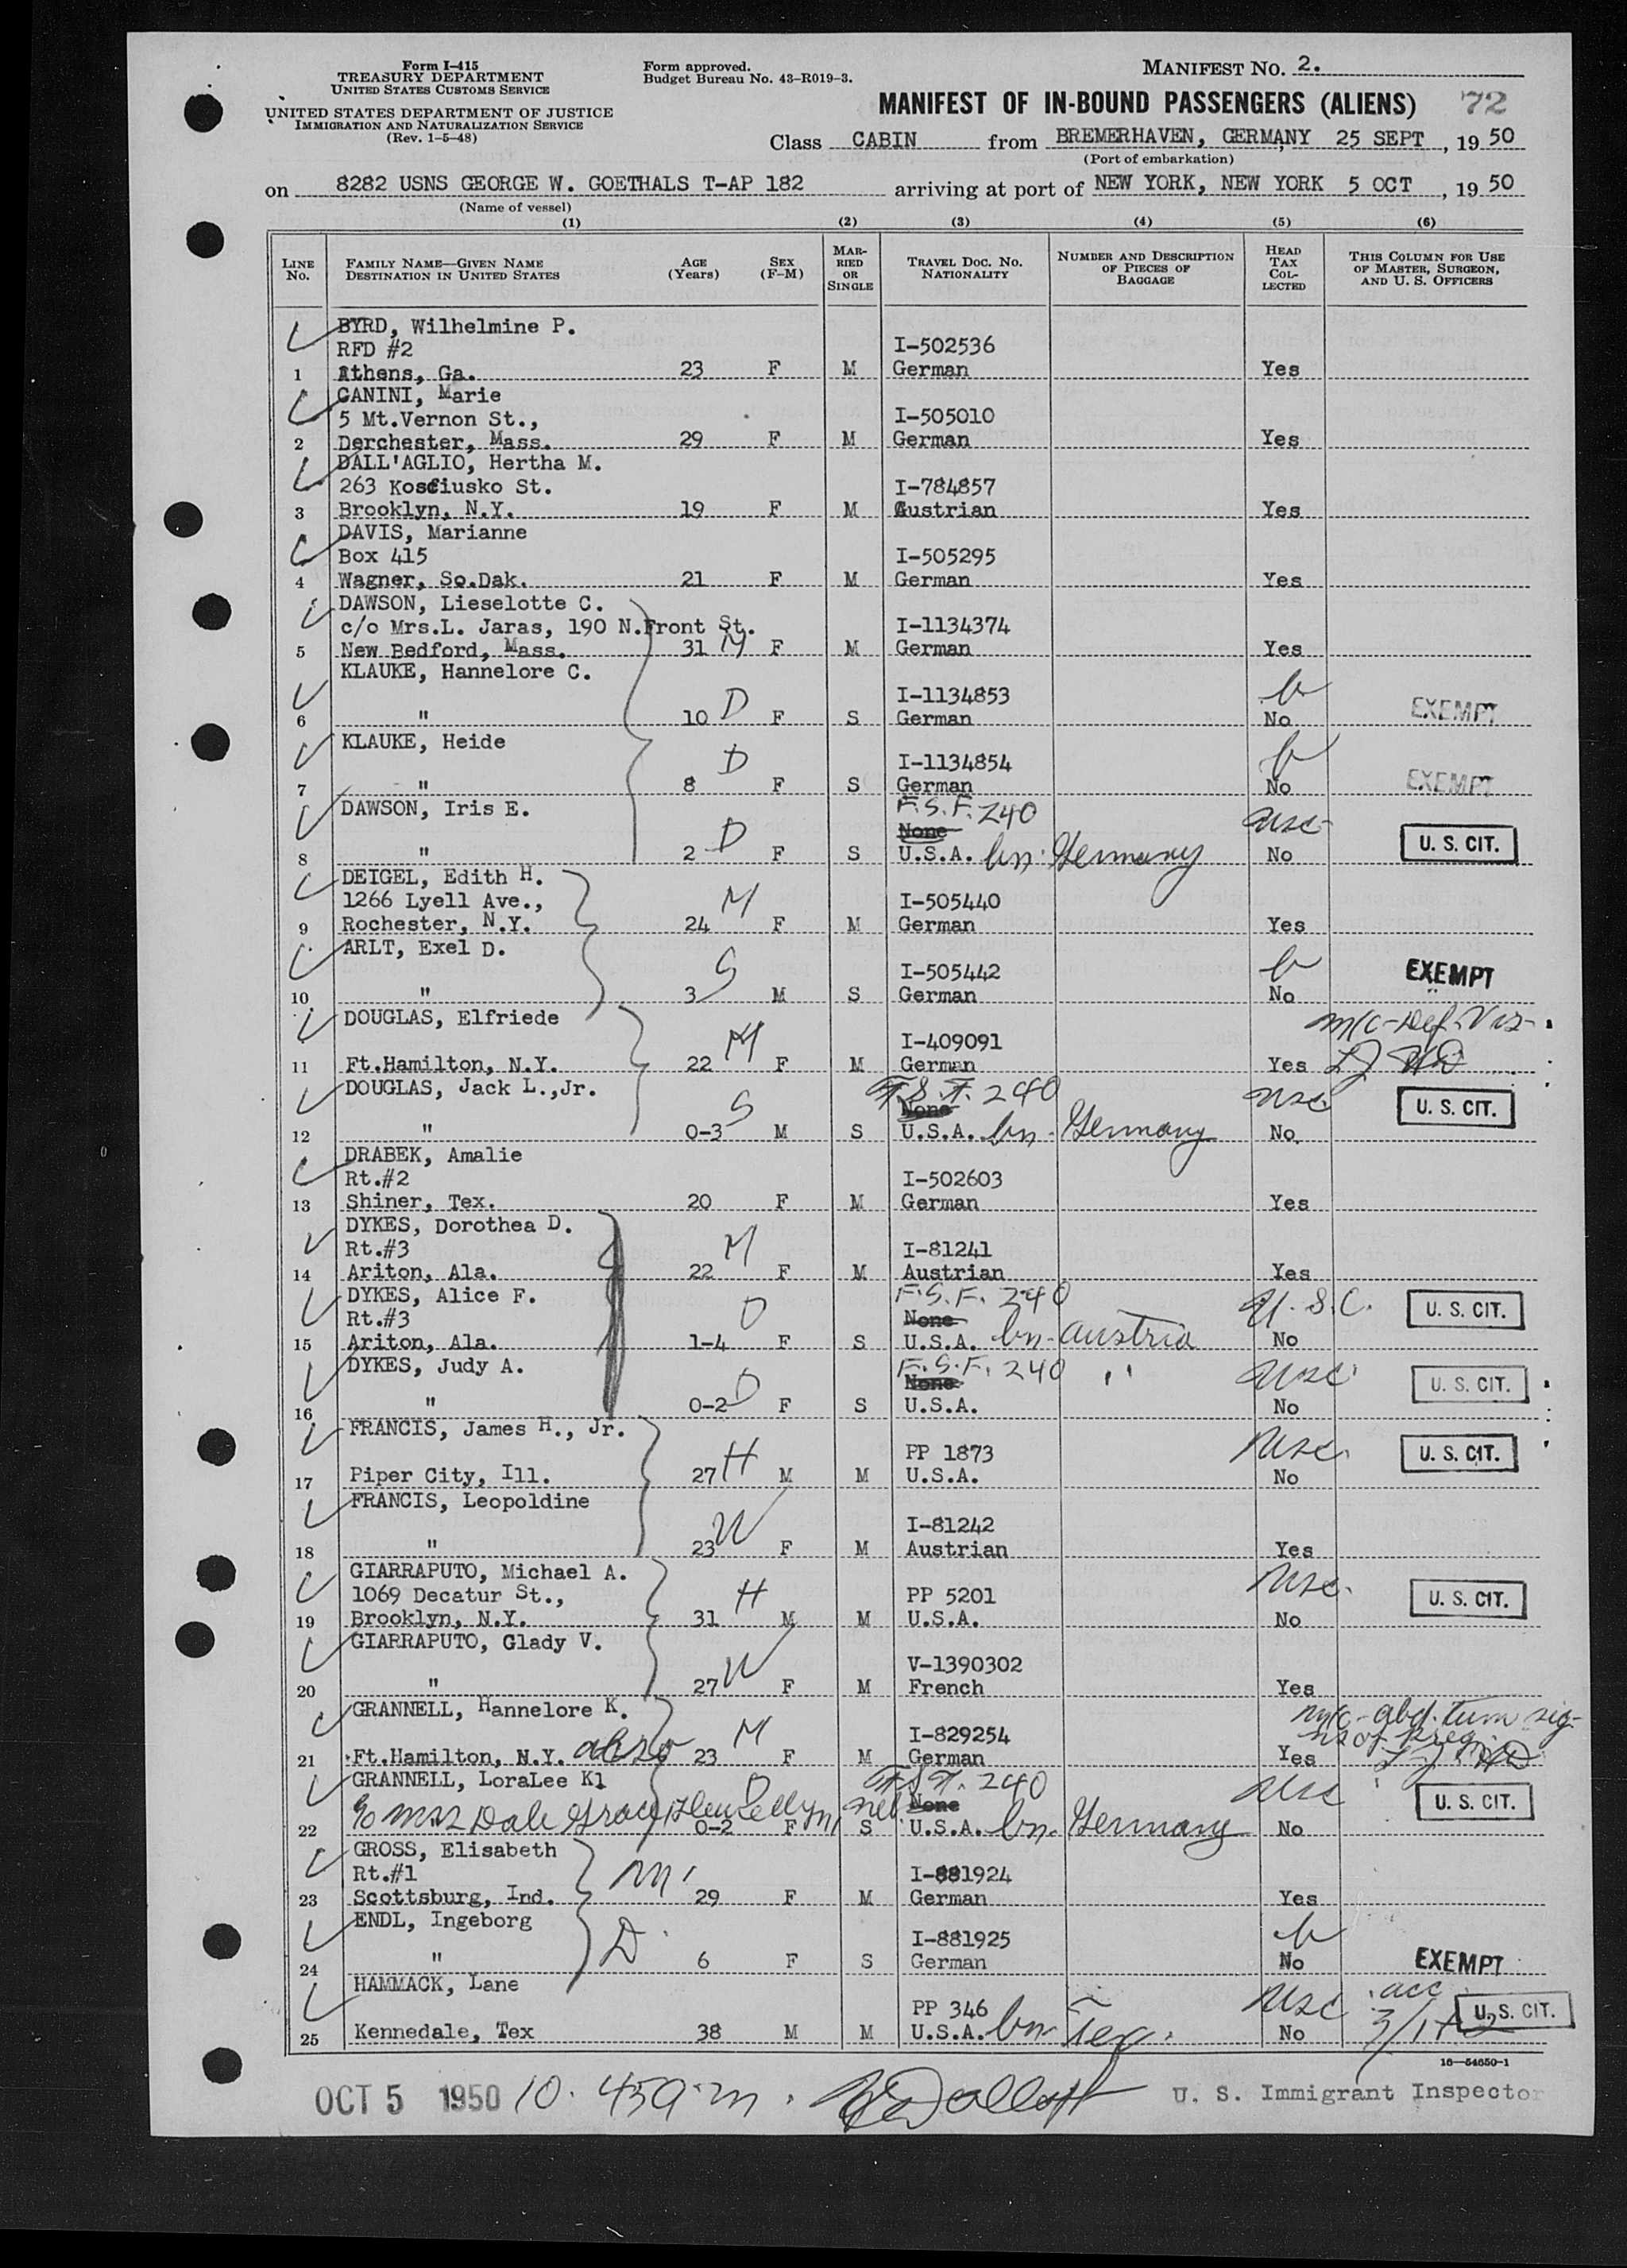 Form I-415
TREASURY DEPARTMENT
UNITED STATES CUSTOMS SERVICE
UNITED STATES DEPARTMENT OF JUSTICE
IMMIGRATION AND NATURALIZATION SERVICE
(Rev. 1-5-48)
Form approved.
Budget Bureau No. 43-R019-3.
MANIFEST NO. 2.
MANIFEST OF IN-BOUND PASSENGERS (ALIENS) 72
Class CABIN from BREMERHAVEN, GERMANY 25 SEPT, 19 50
(Port of embarkation)
on 8282 USNS GEORGE W. GOETHALS T-AP 182 arriving at port of NEW YORK, NEW YORK 5 OCT, 19 50
(Name of vessel)
(1) (2) (3) (4) (5) (6)
LINE NO.
FAMILY NAME—GIVEN NAME
DESTINATION IN UNITED STATES
AGE (Years)
SEX (F-M)
MARRIED OR SINGLE
TRAVEL DOC. NO.
NATIONALITY
NUMBER AND DESCRIPTION OF PIECES OF BAGGAGE
HEAD TAX COLLECTED
THIS COLUMN FOR USE OF MASTER, SURGEON, AND U. S. OFFICERS
BYRD, Wilhelmine P.
RFD #2 I-502536
1 Athens, Ga. 23 F M German Yes
CANINI, Marie
5 Mt.Vernon St., I-505010
2 Derchester, Mass. 29 F M German Yes
DALL'AGLIO, Hertha M.
263 Kosciusko St. I-784857
3 Brooklyn, N.Y. 19 F M Austrian Yes
DAVIS, Marianne
Box 415 I-505295
4 Wagner, So.Dak. 21 F M German Yes
DAWSON, Lieselotte C.
c/o Mrs.L. Jaras, 190 N.Front St. I-1134374
5 New Bedford, Mass. 31 M F M German Yes
KLAUKE, Hannelore C.
I-1134853
6 " 10 D F S German No EXEMPT
KLAUKE, Heide
I-1134854
7 " 8 D F S German No EXEMPT
DAWSON, Iris E. F.S.F. 240
None usc U. S. CIT.
8 " 2 D F S U.S.A. bn. Germany No
DEIGEL, Edith H.
1266 Lyell Ave., I-505440
9 Rochester, N.Y. 24 M F M German Yes
ARLT, Exel D.
I-505442 EXEMPT
10 " 3 S M S German No
DOUGLAS, Elfriede m/c-Def. Vis-
I-409091
11 Ft.Hamilton, N.Y. 22 M F M German Yes
DOUGLAS, Jack L.,Jr. F.S.F. 240
None usc U. S. CIT.
12 " 0-3 S M S U.S.A. bn. Germany No
DRABEK, Amalie
Rt.#2 I-502603
13 Shiner, Tex. 20 F M German Yes
DYKES, Dorothea D.
Rt.#3 I-81241
14 Ariton, Ala. 22 M F M Austrian Yes
DYKES, Alice F. F.S.F. 240
Rt.#3 None U.S.C. U. S. CIT.
15 Ariton, Ala. 1-4 D F S U.S.A. bn. Austria No
DYKES, Judy A. F.S.F. 240 "
None usc U. S. CIT.
16 " 0-2 D F S U.S.A. No
FRANCIS, James H., Jr.
PP 1873 usc. U. S. CIT.
17 Piper City, Ill. 27 H M M U.S.A. No
FRANCIS, Leopoldine
I-81242
18 " 23 W F M Austrian Yes
GIARRAPUTO, Michael A.
1069 Decatur St., PP 5201 usc. U. S. CIT.
19 Brooklyn, N.Y. 31 H M M U.S.A. No
GIARRAPUTO, Glady V.
V-1390302
20 " 27 W F M French Yes
GRANNELL, Hannelore K. m/c-abd. tum sig-
I-829254 ns of preg.
21 Ft.Hamilton, N.Y. also 23 M F M German Yes
GRANNELL, LoraLee Kl F.S.F. 240
c/o Mrs Dale None usc U. S. CIT.
22 0-2 D F S U.S.A. bn. Germany No
GROSS, Elisabeth
Rt.#1 M I-881924
23 Scottsburg, Ind. 29 F M German Yes
ENDL, Ingeborg
D I-881925
24 " 6 F S German No EXEMPT
HAMMACK, Lane
PP 346 usc acc U. S. CIT.
25 Kennedale, Tex 38 M M U.S.A. bn Tex. No
16—54650-1
OCT 5 1950 10.45 a.m. U. S. Immigrant Inspector